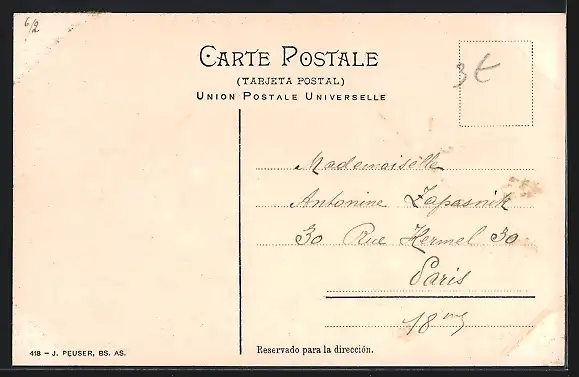 6/2
CARTE POSTALE
(TARJETA POSTAL)
UNION POSTALE UNIVERSELLE
3€
Mademoiselle
Antonine Zapasnik
30 Rue Hermel 30
Paris
18me
418 – J. PEUSER, BS. AS.
Reservado para la dirección.